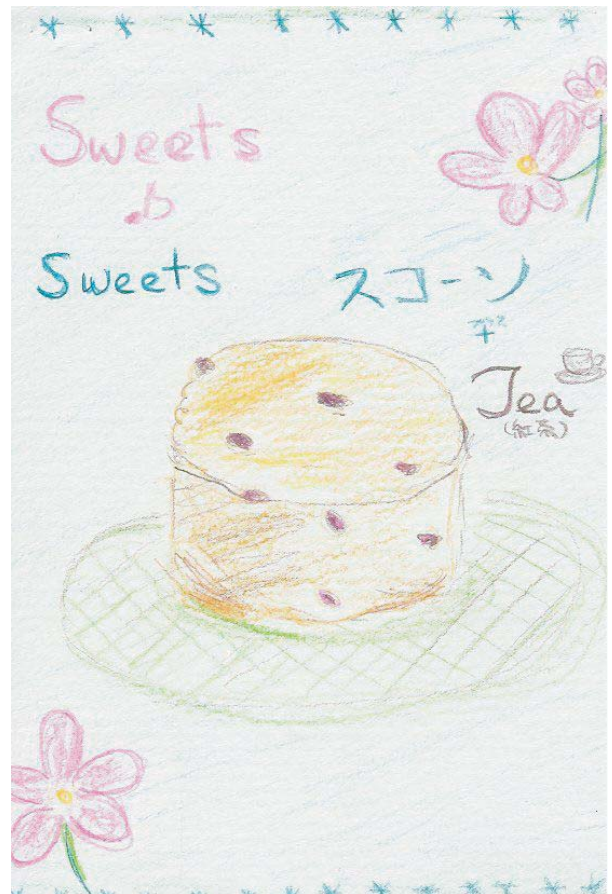 Sweets
Sweets
スコーン
Tea
(紅茶)